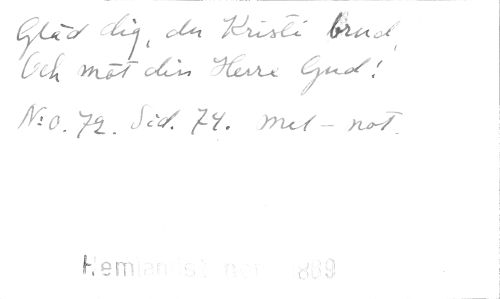 Gläd dig, du Kristi brud,
Och möt din Herre Gud!
N:o. 72. Sid. 74. mel - not.